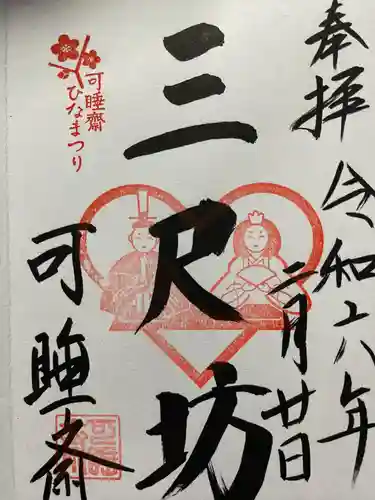 奉拝
令和六年
二月廿日
三尺坊
可睡斎
可睡齋
ひなまつり